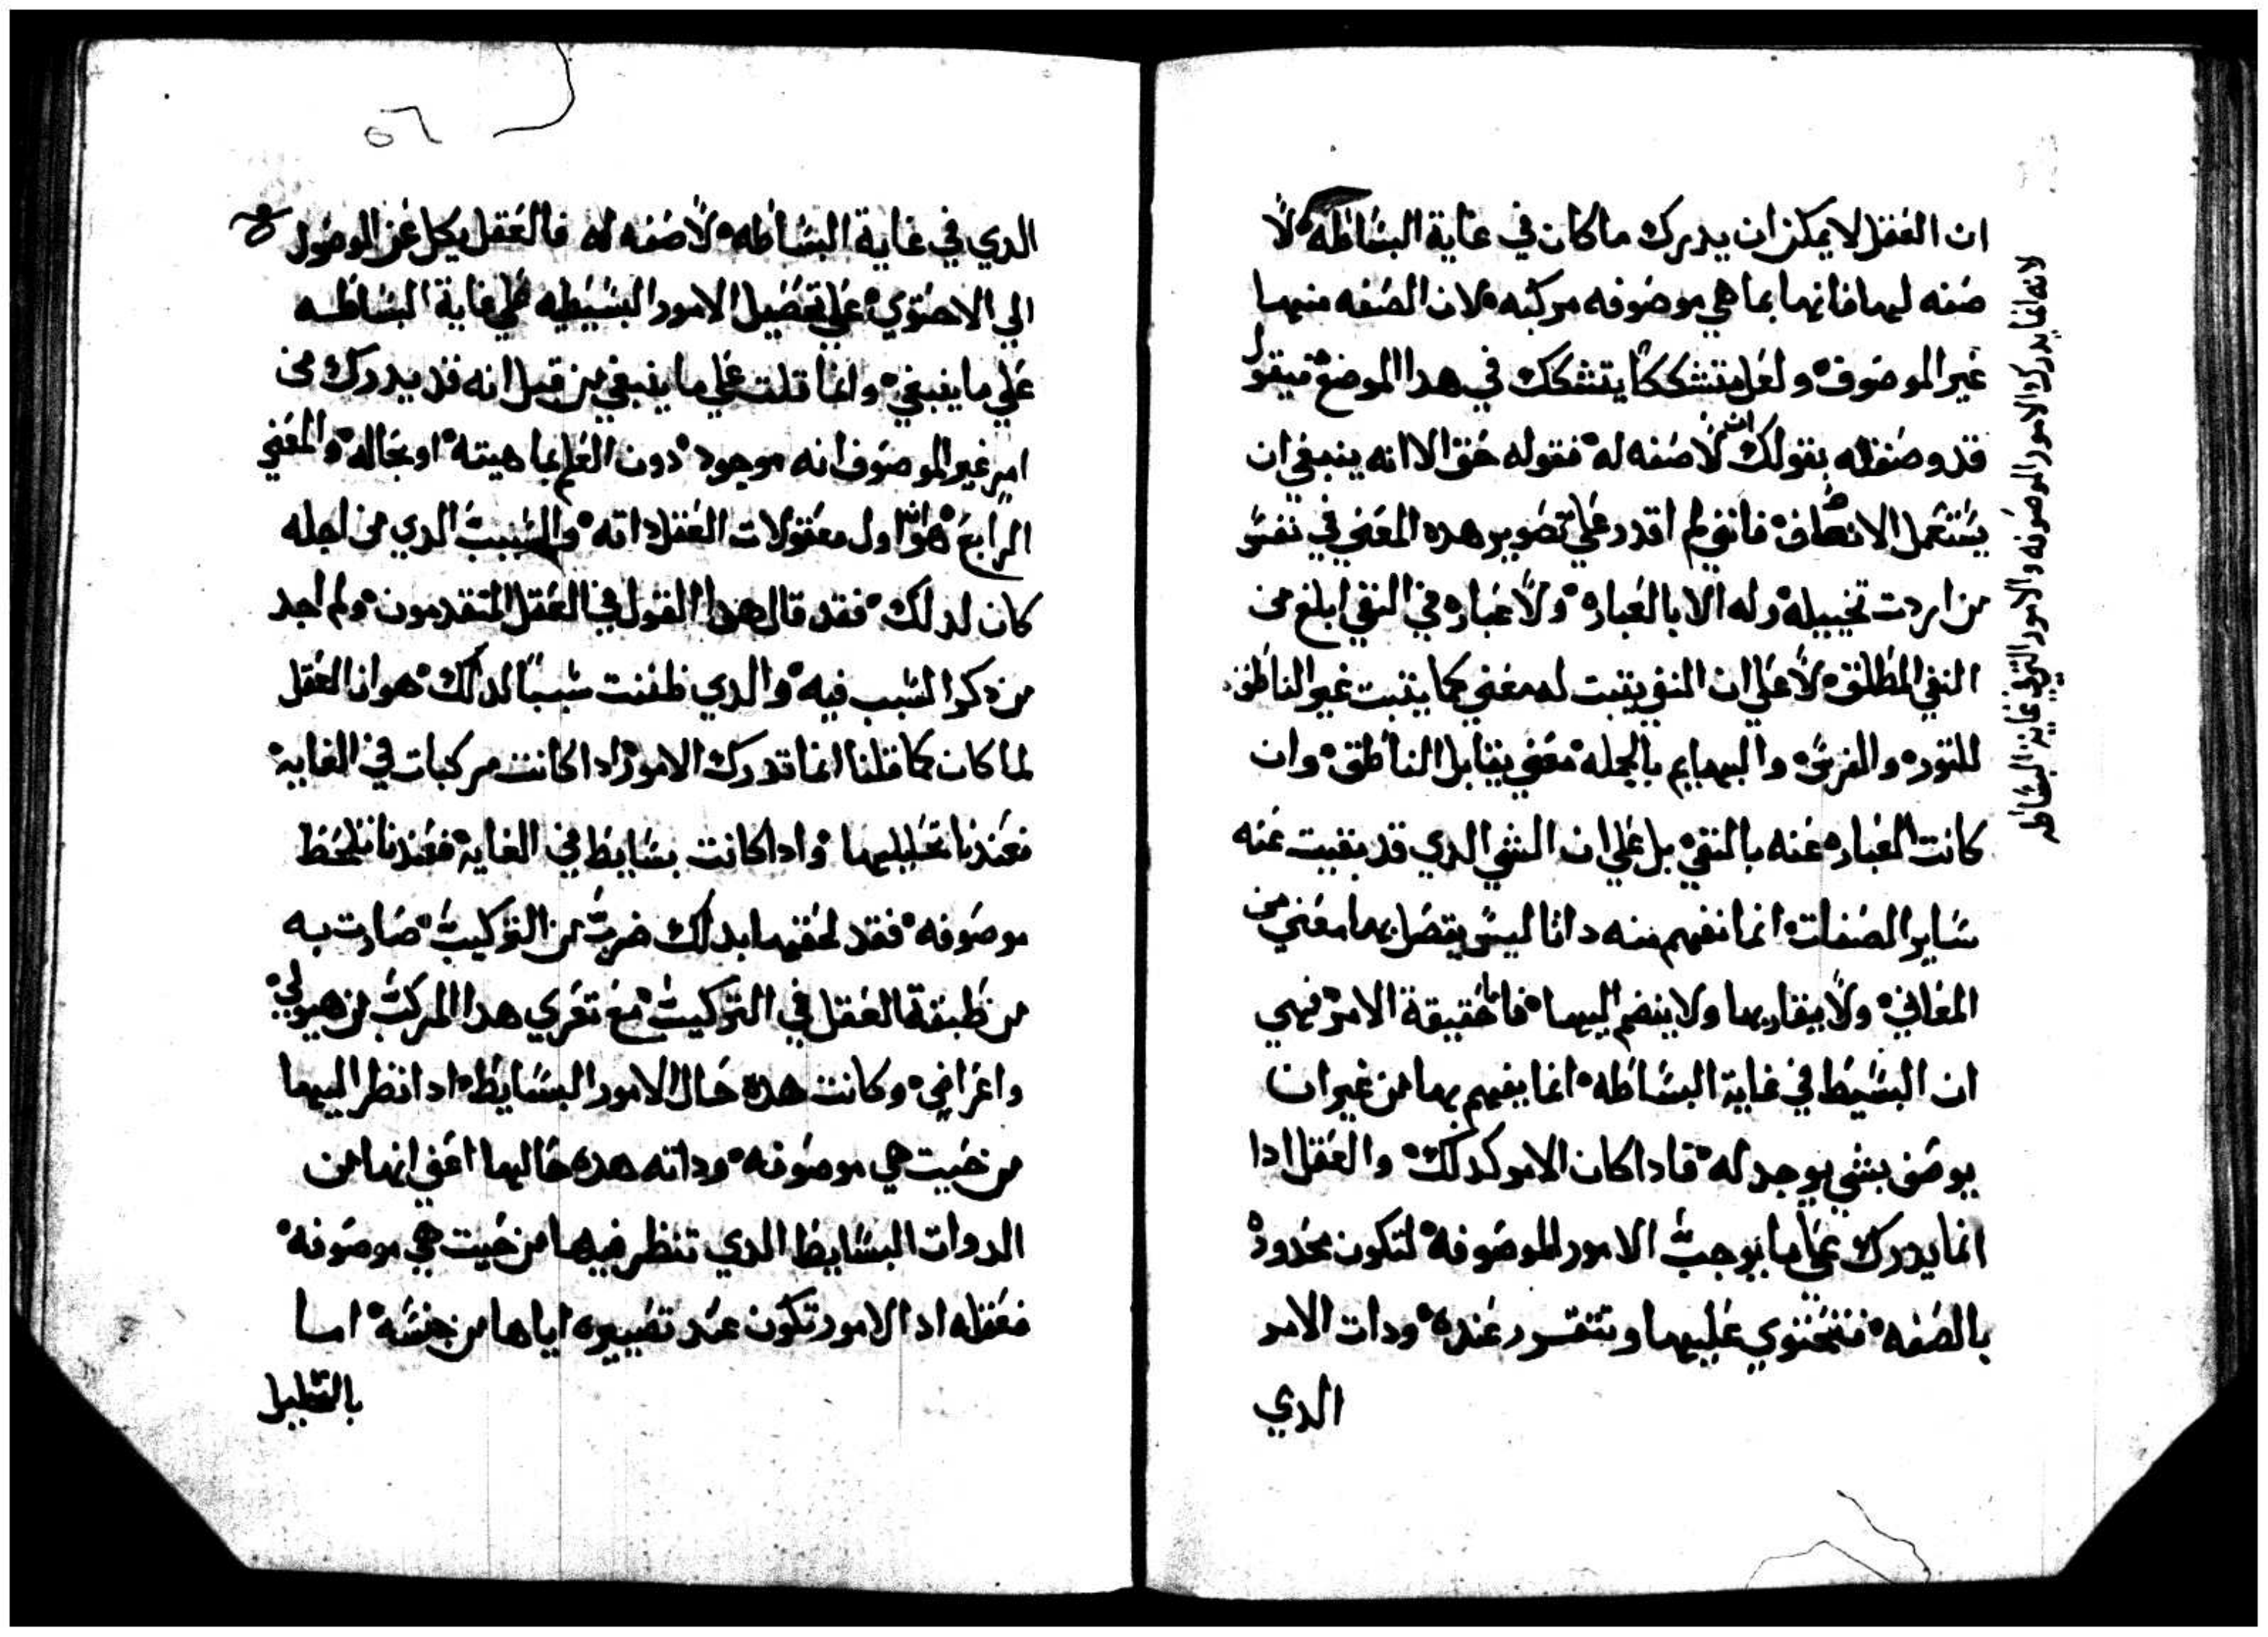 ان العقل لا يمكن ان يدرك ما كان في غاية البساطه لا
صفه ليها فانها بما هي موصوفه مركبه لان الصفه منها
غير الموصوف ولعل متشككا يتشكك في هدا الموضع فيقول
قد وصفته بقولك انه لا صفه له فقوله حق الا انه ينبغي ان
يستعمل الانصاف فانني لم اقدر علي تصوير هده المعني في نفس
من اردت تخييله له الا بالعباره ولا عباره في النفي ابلغ من
النفي المطلق لا علي ان المنفي يتبت له معني كما يتبت غير الناطق
للتور والفرس والبهايم بالجمله معني يقابل الناطق وان
كانت العباره عنه بالنفي بل علي ان الشي الدي قد بقيت عنه
ساير الصفات انما نفهم منه داتا ليس يتصل بها معني من
المعاني ولا يقاربها ولا ينضم اليها فاما حقيقة الامر فهي
ان البسيط في غاية البساطه انما يفهم بها من غير ان
يوصف بشي يوجد له فادا كان الامر كدلك والعقل ادا
انما يدرك علي ما يوجب الامور الموصوفه لتكون محدوده
بالصفه فتحتوي عليها وتتقرر عنده ودات الامر
الدي
لانه انما يدرك الامور الموصوفه والامور التي في غاية البساطه
٥٦
الدي في غاية البساطه لا صفه له فالعقل يكل عن الوصول
الي الاحتوي علي تفضيل الامور البسيطه علي غاية البساطه
علي ما ينبغي وانما قلت علي ما ينبغي من قبل انه قد يدرك من
امر غير الموصوف انه موجود دون العلم بماهيته او بحاله والمعني
الرابع هو ان اول معقولات العقل داته والسبب الدي من اجله
كان لدلك فقد قال هدا القول في العقل المتقدمون ولم اجد
من دكر السبب فيه والدي ظننت سببا لدلك هو ان العقل
لما كان كما قلنا انما تدرك الامور ادا كانت مركبات في الغايه
فعندنا تحليلها وادا كانت بسايط في الغايه فعندنا تلحظ
موصوفه فقد لحقها بدلك ضرب من التركيب صارت به
من طبيعة العقل في التركيب مع تعري هدا المركب من هيولي
واعراض وكانت هده حال الامور البسايط ادا نظر اليها
من حيت هي موصوفه وداته هده حالها اعني انها من
الدوات البسايط الدي تنظر فيها من حيت هي موصوفه
فعقله ادا الامور تكون عند تصييره اياها من جنسه اما
بالتحليل